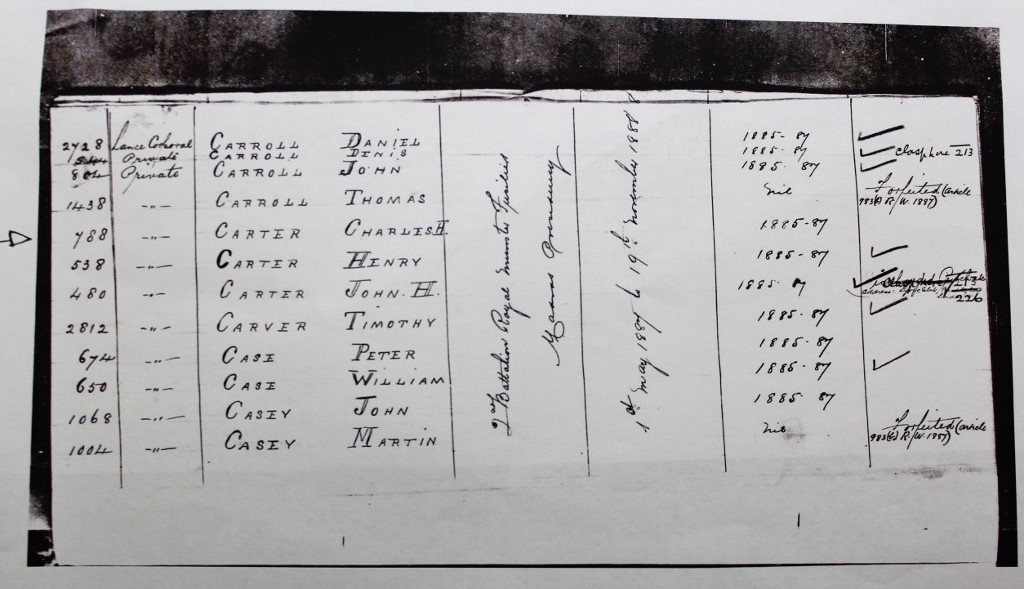 2728 Lance Corporal CARROLL DANIEL 1885-87
Private CARROLL DENIS 1885-87 clasp here 213
804 Private CARROLL JOHN 1885-87
1438 -"- CARROLL THOMAS nil Forfeited (article 983(?) R/W. 1887)
788 -"- CARTER CHARLES H. 1885-87
538 -"- CARTER HENRY 1885-87
480 -"- CARTER JOHN. H. 1885- 7 213
226
2812 -"- CARVER TIMOTHY 1885-87
674 -"- CASE PETER 1885-87
650 -"- CASE WILLIAM 1885-87
1068 -"- CASEY JOHN 1885-87
1004 -"- CASEY MARTIN nil Forfeited (article R/W. 1887)
2nd Battalion Royal Munster Fusiliers
1st May 1887 to 19th November 1888